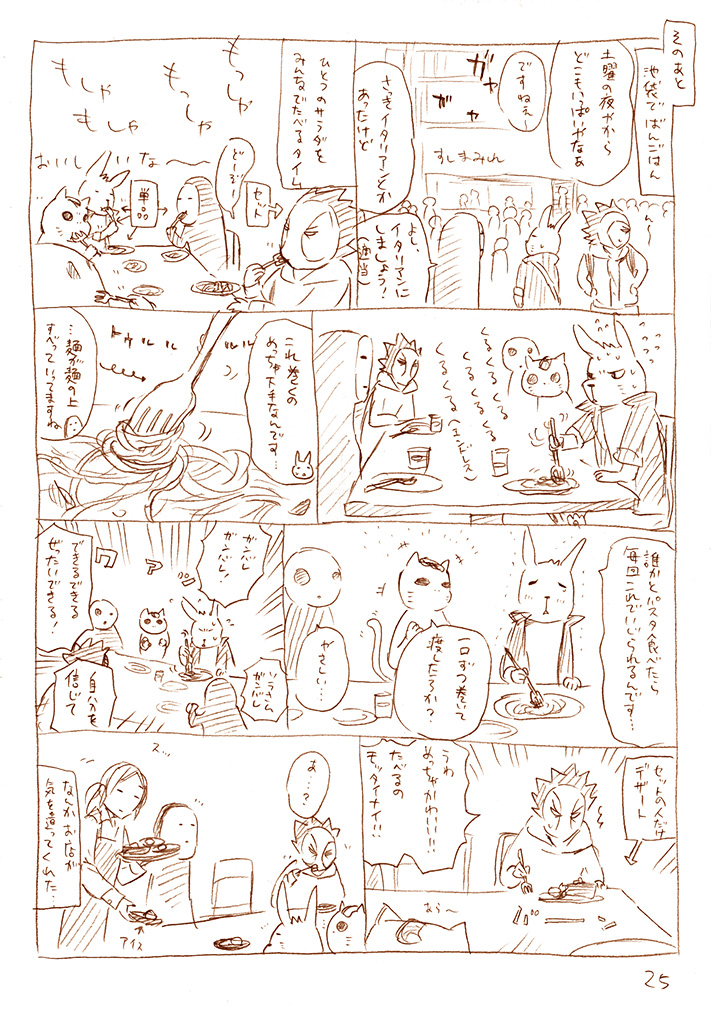 そのあと
池袋でばんごはん
土曜の夜やから
どこもいっぱいやなぁ
ですねぇー
ガヤ
ガヤ
すしまみれ
ん〜
さっきイタリアンとか
あったけど
よし、
イタリアンに
しましょう！
(適当)
ひとつのサラダを
みんなでたべるタイム
もっしゃ
もっしゃ
もしゃ
もしゃ
おいしいな〜
どーぞー
セット
単品
くるくるくる
くるくるくる
くるくる(エンドレス)
これ巻くの
めっちゃ下手なんです…
トゥルルル
…麺が麺の上
すべっていってますね
誰かとパスタ食べたら
毎回これでいじられるんです…
一口ずつ巻いて
渡したろか？
やさしい…
ガンバレ
ガンバレ！
ワァァッ
できるできる
ぜったいできる！
自分を
信じて
ガンバレ
セットの人だけ
デザート
うわ
めっちゃかわいい!!
たべるの
モッタイナイ!!
あら〜
あ…？
スッ
なんかお店が
気を遣ってくれた…
アイス
25